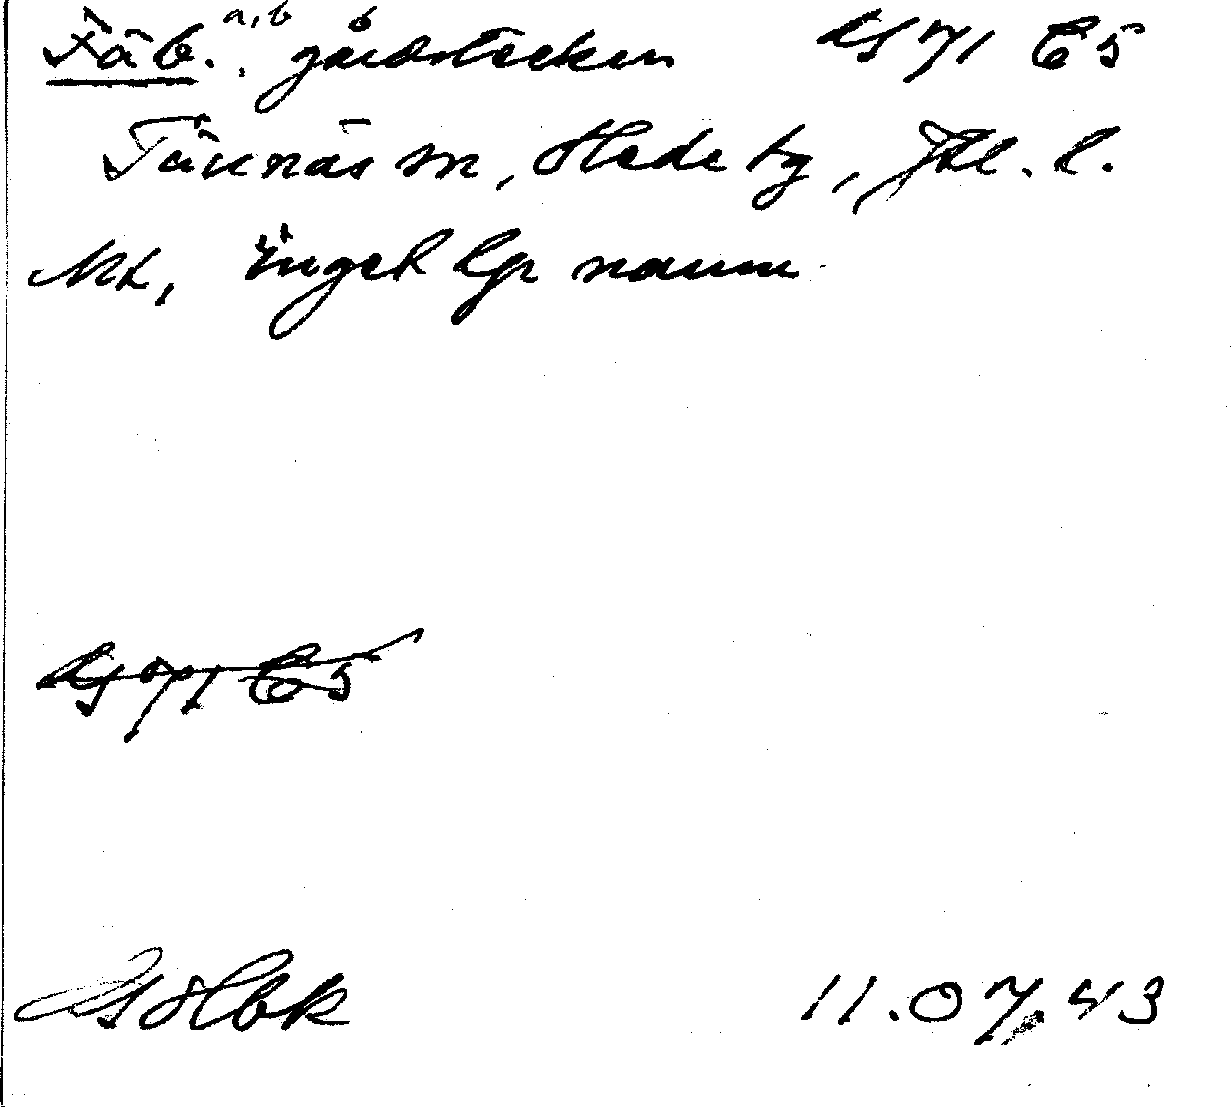 Fäb. a, b gårdstecken GS 71 C5
Tännäs sn, Hede tg, Jtl. l.
Nt, inget lp namn
GS 71 C5
11.07.43